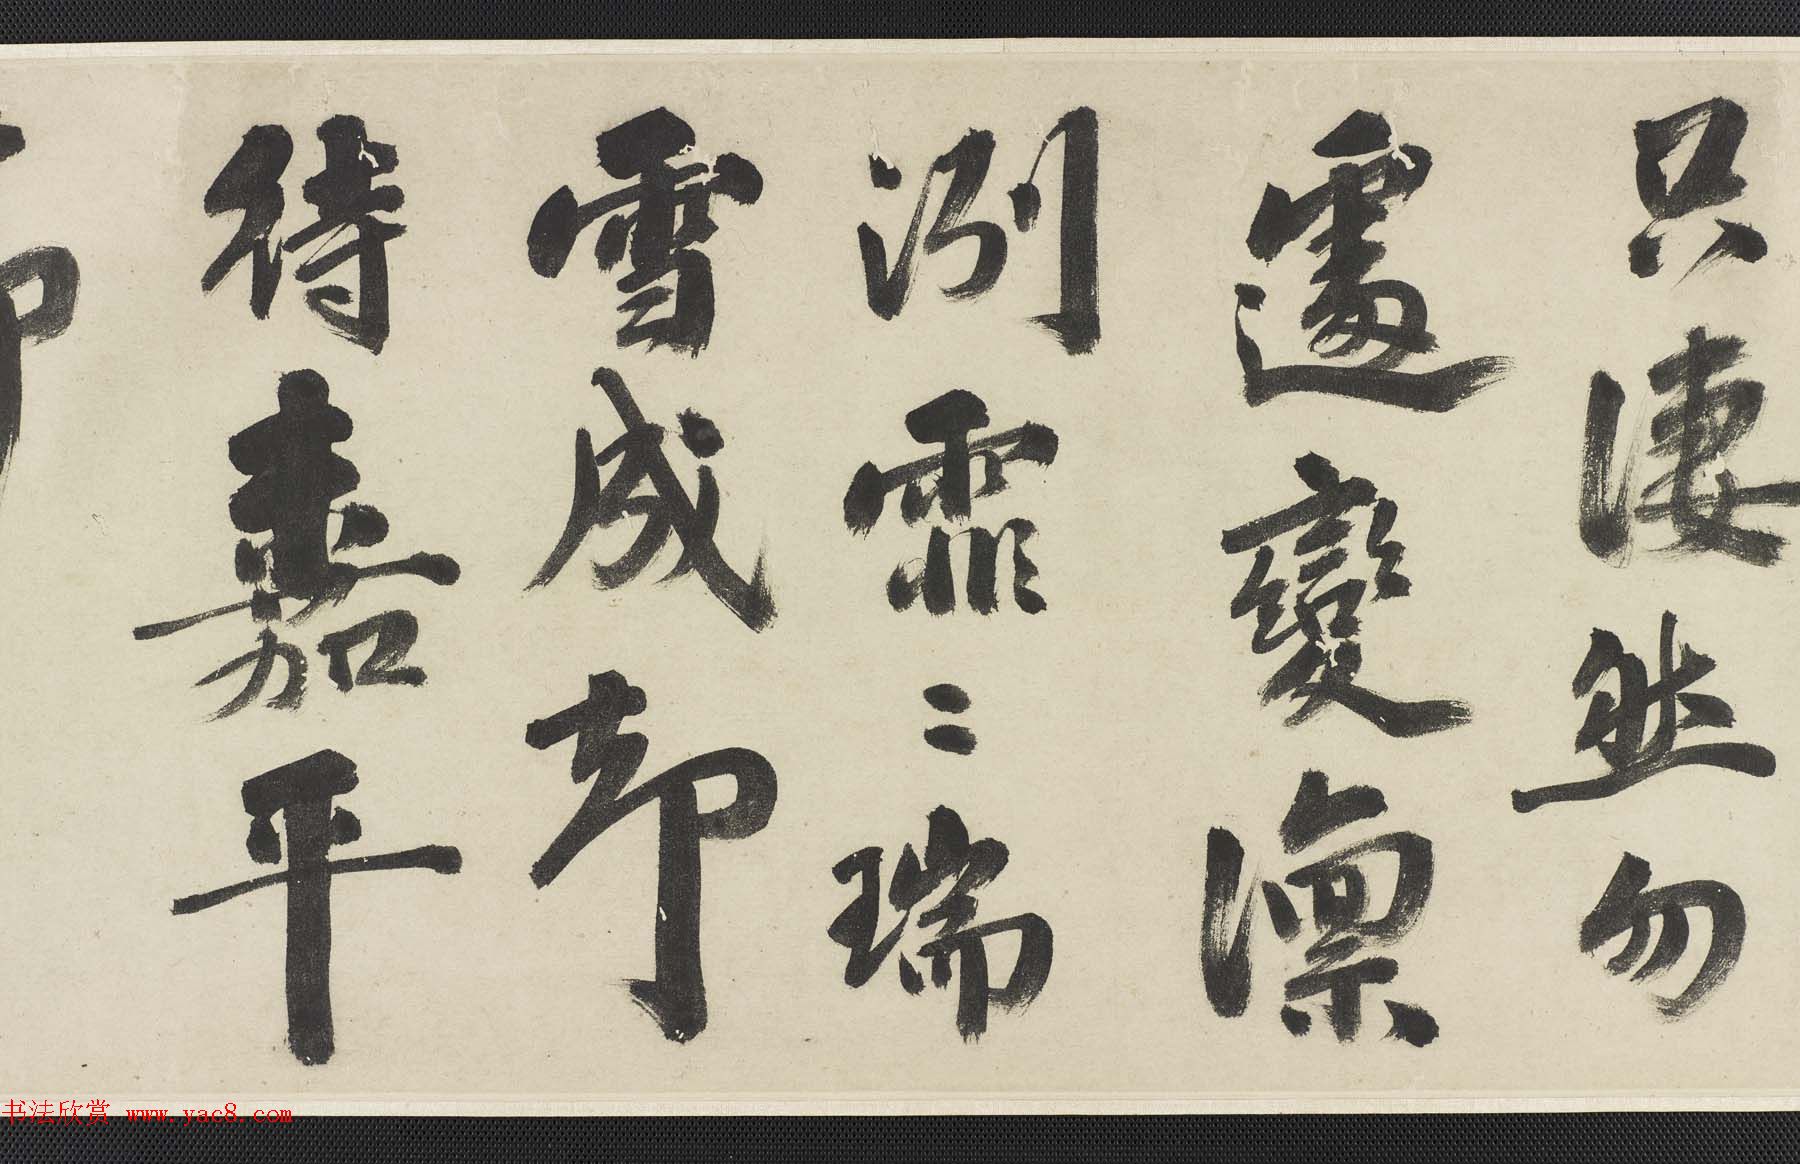 只凄然勿
遽變凜
冽霏〻瑞
雪成却
待嘉平
书法欣赏 www.yac8.com